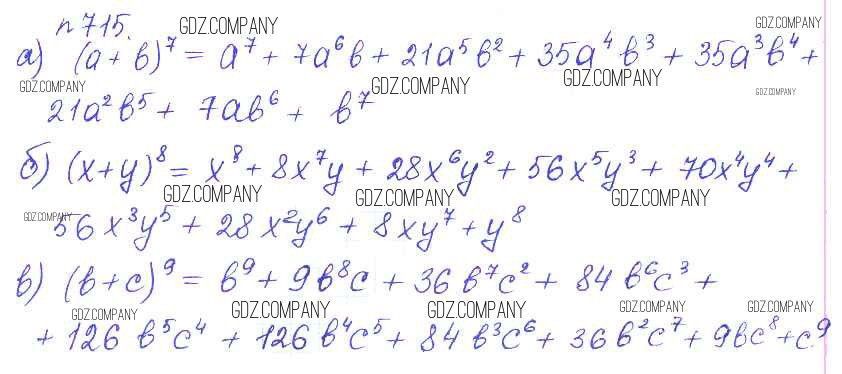 n 715. GDZ.COMPANY GDZ.COMPANY
а) (a + b)⁷ = a⁷ + 7a⁶b + 21a⁵b² + 35a⁴b³ + 35a³b⁴ +
GDZ.COMPANY GDZ.COMPANY GDZ.COMPANY GDZ.COMPANY
21a²b⁵ + 7ab⁶ + b⁷
б) (x+y)⁸ = x⁸ + 8x⁷y + 28x⁶y² + 56x⁵y³ + 70x⁴y⁴ +
GDZ.COMPANY GDZ.COMPANY GDZ.COMPANY GDZ.COMPANY
56x³y⁵ + 28x²y⁶ + 8xy⁷ + y⁸
в) (b+c)⁹ = b⁹ + 9b⁸c + 36b⁷c² + 84b⁶c³ +
GDZ.COMPANY GDZ.COMPANY GDZ.COMPANY GDZ.COMPANY GDZ.COMPANY
+ 126b⁵c⁴ + 126b⁴c⁵ + 84b³c⁶ + 36b²c⁷ + 9bc⁸ + c⁹